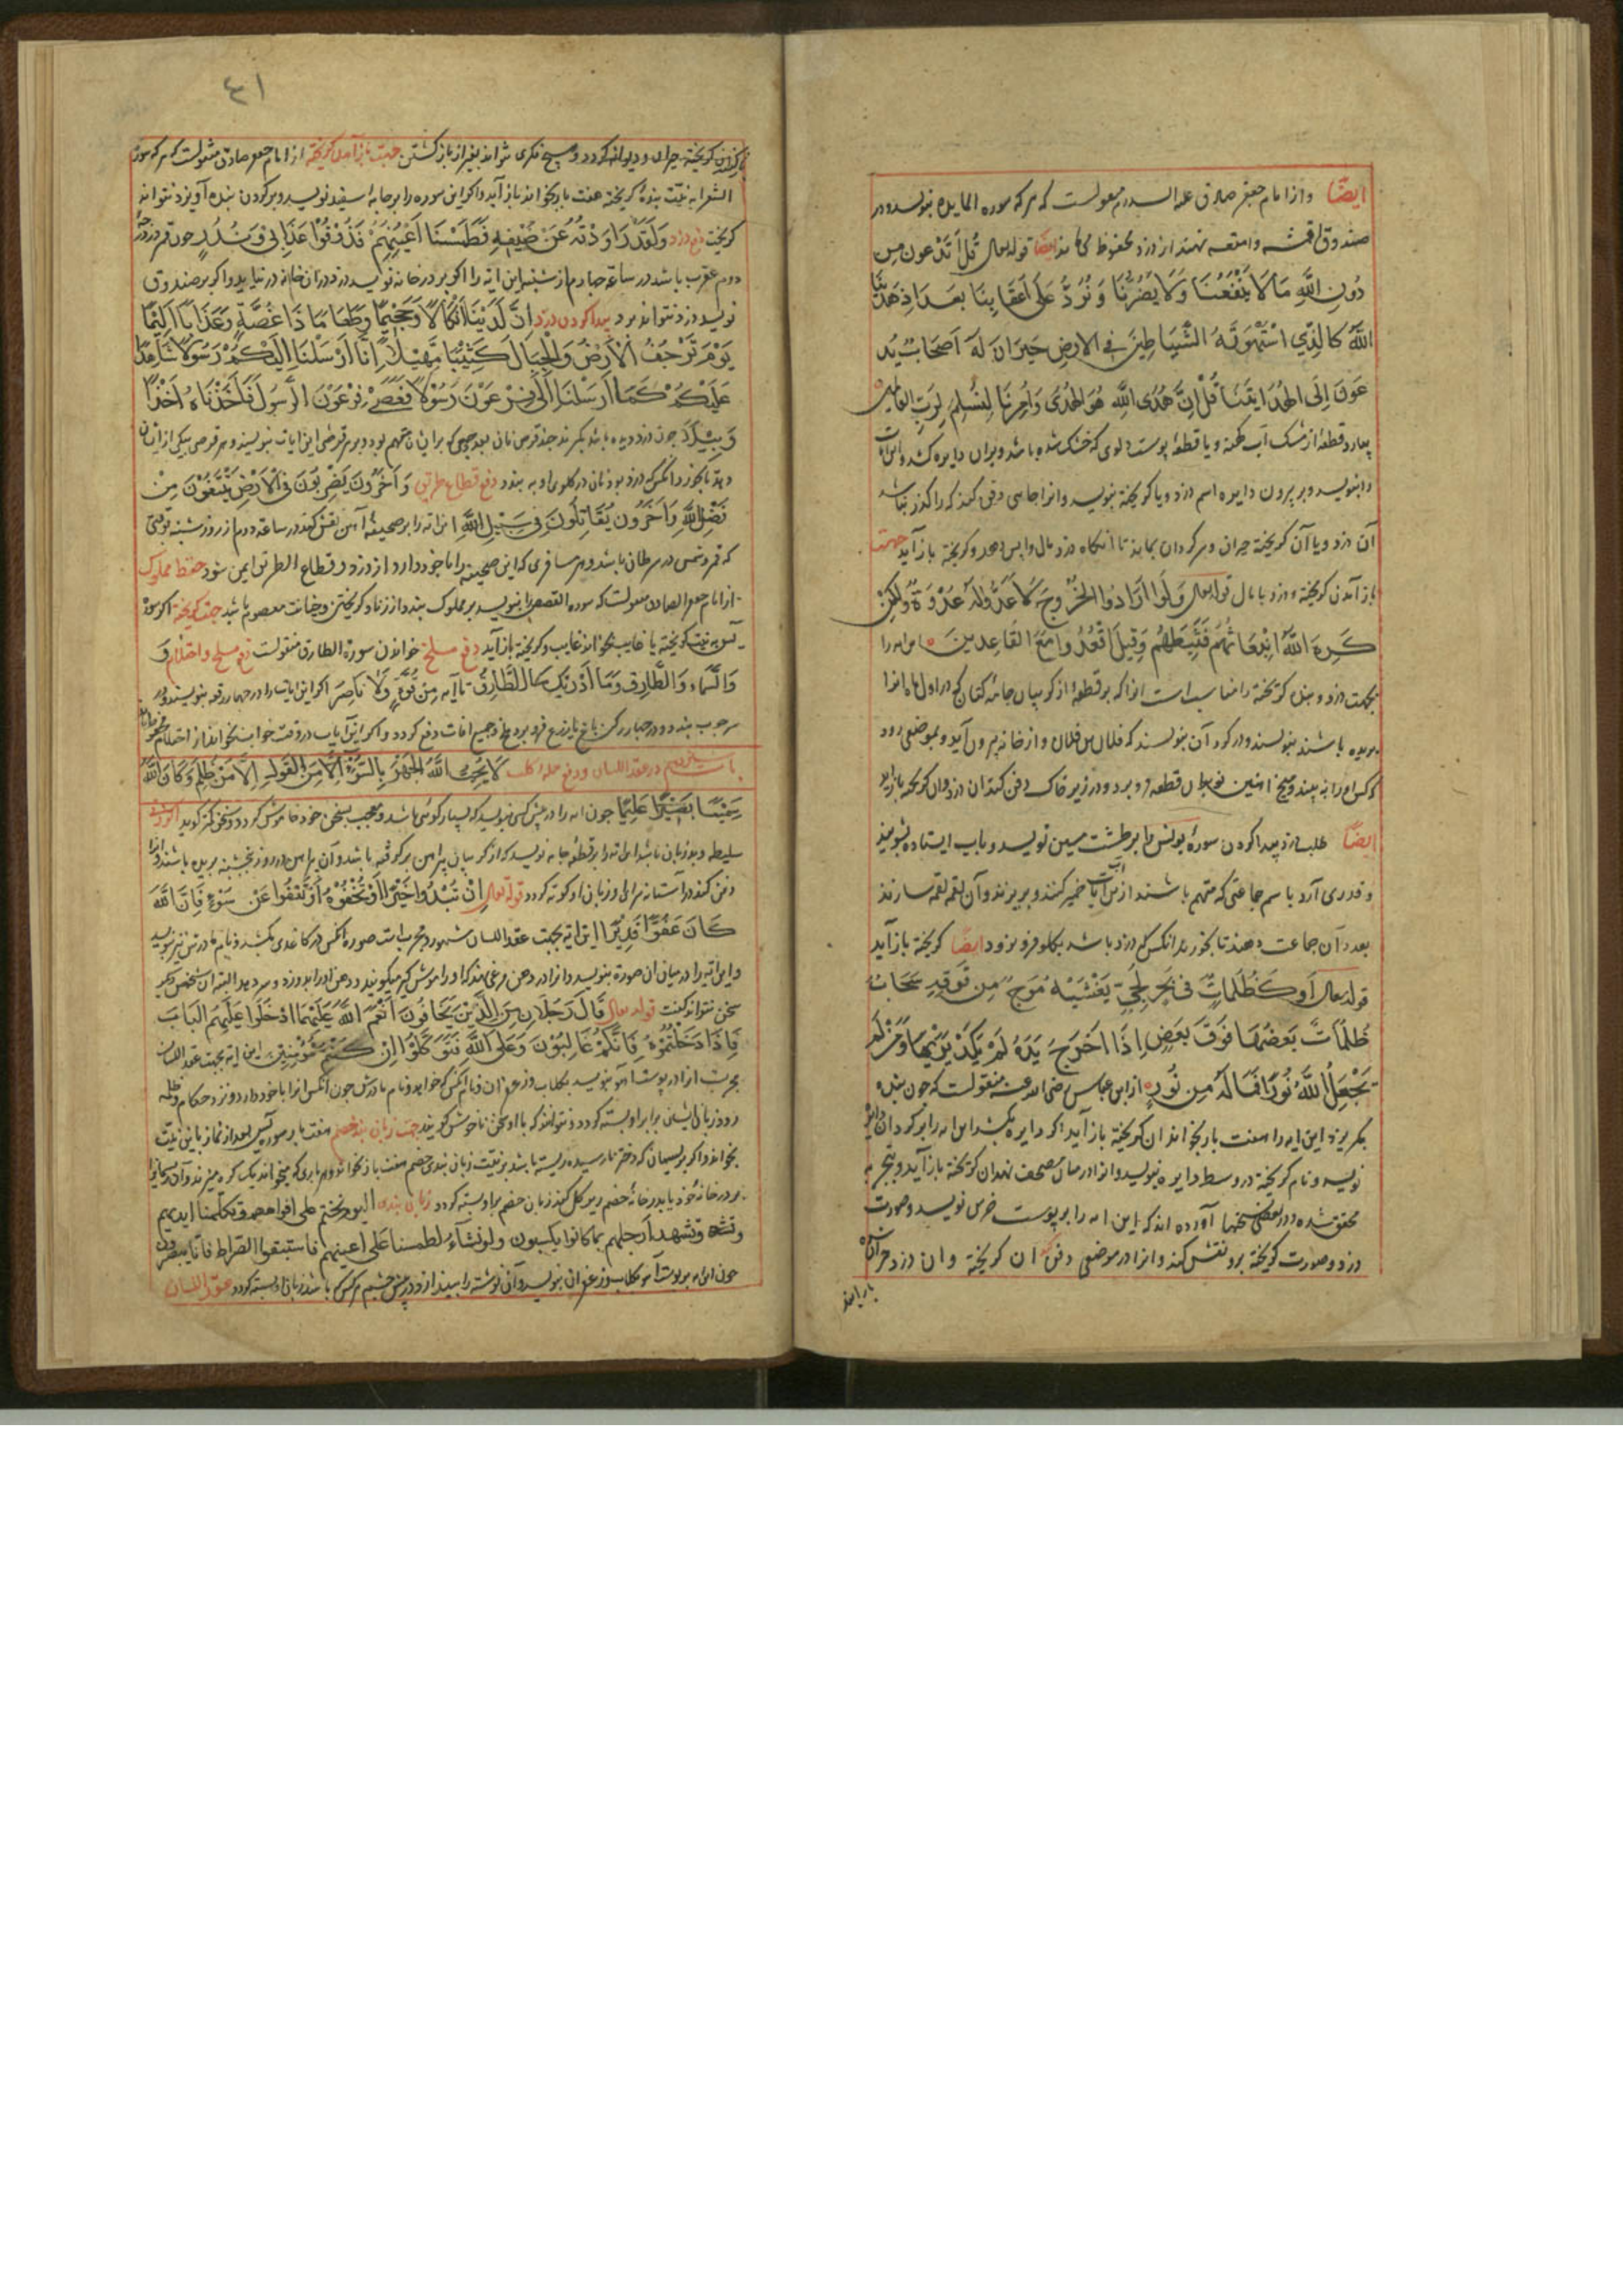 ایضًا وازامام جعفر صادق علیه السلام منقولست که هرکه سوره المایده بنویسد ودر
صندوق اقمشه وامتعه نهند از دزد محفوظ ماند ایضًا قوله تعالی قُل اَتَدْعون مِن
دُونِ اللَّهِ مَا لَا یَنْفَعُنَا وَلَا یَضُرُّنَا وَنُرَدُّ عَلی اَعقَابِنَا بعدَ اِذهَدینَا
اللَّهُ کالذِّی اسْتَهْوَتْهُ الشَّیَاطِینُ فی الارضِ حَیرَانَ لَهُ اَصحَابٌ یَد
عَوَنَهُ اِلَی الهُدَا ایتِنَا قُلْ اِنَّ هُدَی اللَّهِ هُوَ الهُدَی وَاُمِرنَا لِنُسلِمَ لِرَبِّ العالمین
بیارد قطعهٔ از مشک آب کهنه ویا قطعهٔ پوست دلوی که خشک شده باشد وبران دایره کشد واین آیات
را بنویسد وبر برون دایره اسم دزد ویا کریخته بنویسد وانرا جایی دفن کند که راکذر نباشد
آن دزد ویا آن کریخته حیران وسرکردان بماند تا آنکاه دزد مال واپس دهد وکریخته بازآید جهت
باز آمدن کریخته ودزد با مال قوله تعالی وَلَوا اَرَادُوا الخُرُوجَ لَاَعَدُّوا لَهُ عُدَّةً وَلکِنْ
کَرِهَ اللَّهُ انْبِعَاثَهُم فَثَبَّطَهُم وَقِیلَ اقْعُدُوا مَعَ القَاعِدینَ این ایه را
بجهت دزد وبنده کریخته را مناسب است انرا که بر قطعهٔ از کریبان جامهٔ کتان که در اول ماه انرا
بریده باشند بنویسند ودر کرد آن بنویسند که فلان بن فلان واز خانه بیرون آید وبموضعی رود
وکس او را نه بیند ومیخ اهنین بمیان قطعه فرو برد ودر زیر خاک دفن کند ان دزد وان کریخته بازاید
ایضًا طلب دزد پیدا کردن سورهٔ یونس را بر طشت مسین نویسد وباب ایستاده بشویند
وقدری آرد باسم جماعتی که متهم باشند ازین آب خمیر کنند وبریزند وآن لقمه لقمه سازند
بعده آن جماعت دهند تا بخورند انکس که دزد باشد بکلو فرو نرود ایضًا کریخته بازآید
قوله تعالی اَو کَظُلُمَاتٍ فی بَحرٍ لُجِّیٍّ یَغْشَیٰهُ مَوجٌ مِن فَوقِهِ سَحَابٌ
ظُلُمَاتٌ بَعضُهَا فَوقَ بَعضٍ اِذَا اَخرَجَ یَدَهُ لَم یَکَدْ یَرٰیهَا وَمَن لَم
یَجْعَلِ اللَّهُ نُورًا فَمَا لَهُ مِن نُورٍ از ابن عباس رضی الله عنه منقولست که چون بنده
بکریزد این ایه را هفت بار بخواند ان کریخته باز آید اکر دایره بکشد این ایه را بر کرد ان دایره
نویسد ونام کریخته در وسط دایره بنویسد وانرا در میان مصحف نهد ان کریخته باز آید وبتجربه
محقق شده ودر بعضی نسخها آورده اند که این ایه را بر پوست خرس نویسد وصورت
دزد وصورت کریخته برو نقش کند وانرا در موضعی دفن کند ان کریخته وان دزد
٤١
کریخته حیران ودیوانه کردد وهیچ فکری نتواند بغیر از باز کشتن جهت بازآمدن کریخته از امام جعفر صادق منقولست که هرکه سوره
الشعرا به نیّت بندهٔ کریخته هفت بار بخواند بازآید واکر این سوره را بر جامهٔ سفید نویسد وبر کردن بنده آویزد نتواند
کریخت دفع دزد وَلَقَد رَاوَدُوهُ عَنْ ضَیْفِهِ فَطَمَسْنَا اَعْیُنَهُم فَذُوقُوا عَذَابی وَنُذُرِ چون قمر در درجهٔ
دوم عقرب باشد در ساعة چهارم از شنبه این ایه را اکر بر در خانه نویسد دزد در ان خانه در نیاید واکر بر صندوق
نویسد دزد نتواند برد پیدا کردن دزد اِنَّ لَدَیْنَا اَنْکَالًا وَجَحِیمًا وَطَعَامًا ذَا غُصَّةٍ وَعَذَابًا اَلِیمًا
یَوْمَ تَرْجُفُ الْاَرْضُ وَالْجِبَالُ وَکَانَتِ الْجِبَالُ کَثِیبًا مَهِیلًا اِنَّا اَرْسَلْنَا اِلَیْکُمْ رَسُولًا شَاهِدًا
عَلَیْکُمْ کَمَا اَرْسَلْنَا اِلَی فِرْعَوْنَ رَسُولًا فَعَصٰی فِرْعَوْنُ الرَّسُولَ فَاَخَذْنَاهُ اَخْذًا
وَبِیْلًا چون دزدیده باشد بکیرند چند قرص نان
بخورد انکس که دزد بود نان در کلوی او به بندد دفع قطاع طریق وَاٰخَرُونَ یَضْرِبُونَ فِی الْاَرْضِ یَبْتَغُونَ مِنْ
فَضْلِ اللَّهِ وَاٰخَرُونَ یُقَاتِلُونَ فِی سَبِیلِ اللَّهِ این ایه را بر صحیفهٔ آهن نقش کند در ساعة دوم از روز شنبه بوقتی
که قمر وشمس در سرطان باشد وهر مسافری که این صحیفه را با خود دارد از دزد وقطاع الطریق ایمن شود حفظ مملوک
از امام جعفر الصادق منقولست که سوره القصص را بنویسد بر مملوک بندد از زنا وکریختن وخیانت معصوم باشد جهت کریخته اکر سوره
یس به نیت کریخته یا غایب بخواند غایب وکریخته بازآید دفع خواندن سورة الطارق منقولست دفع واحتلام
وَالسَّمَاءِ وَالطَّارِقِ وَمَا اَدْرٰیکَ مَا الطَّارِقُ تا آیه مِنْ قُوَّةٍ وَلَا نَاصِرٍ اکر این ایات را در چهار رقعه بنویسند ودر
سر چوب بندد ودر چهار رکن باغ یا مزرع فرو برد ملخ وجمیع افات دفع کردد واکر این آیات در وقت خواب بخواند از احتلام محفوظ ماند
باب در عقد اللسان ودفع لَا یُحِبُّ اللَّهُ الْجَهْرَ بِالسُّوءِ مِنَ الْقَوْلِ اِلَّا مَنْ ظُلِمَ وَکَانَ اللَّهُ
سَمِیْعًا بَصِیْرًا عَلِیمًا چون ایه را در پیش کسی بنویسد که بسیار کوی باشد ومعجب بسخن خود خاموش کردد وسخن کمتر کوید اکر زنی
سلیطه وبد زبان باشد این ایه را بر قطعهٔ جامه نویسد که از کریبان پیراهن بر کرفته باشد وآن پیراهن در روز پنجشنبه بریده باشند وانرا
دفن کند در آستانه سرای او زبان او کوته کردد قوله تعالی اِنْ تُبْدُوا خَیْرًا اَوْ تُخْفُوهُ اَوْ تَعْفُوا عَنْ سُوءٍ فَاِنَّ اللَّهَ
کَانَ عَفُوًّا قَدِیْرًا این ایه بجهت عقد اللسان مشهور ومجرب است صورة انکس در کاغدی بکشد ونام مادرش نیز بنویسد
واین ایه را در میان ان صورة بنویسد وانرا در دهن مرغی نهد که او را موش کیر میکویند ودهن او را بدوزد وسر دهد البته ان شخص دیکر
سخن نتواند کفت قوله تعالی قَالَ رَجُلَانِ مِنَ الَّذِیْنَ یَخَافُونَ اَنْعَمَ اللَّهُ عَلَیْهِمَا ادْخُلُوا عَلَیْهِمُ الْبَابَ
فَاِذَا دَخَلْتُمُوْهُ فَاِنَّکُمْ غَالِبُوْنَ وَعَلَی اللَّهِ فَتَوَکَّلُوْا اِنْ کُنْتُمْ مُؤْمِنِیْنَ این ایه بجهت عقد اللسان
مجربست انرا در پوست آهو بنویسد بکلاب وزعفران ونام انکس که خواهد ونام مادرش چون انکس انرا با خود دارد ونزد حکام
رود زبان ایشان برابر او بسته کردد ونتوانند که با او سخن ناخوش کویند جهت زبان بند خصم هفت بار سوره یس بعد از نماز باین نیّت
بخواند واکر بر ریسمان که دختر نارسیده ریسته باشد بر نیّت زبان بندی خصم هفت بار بخواند وهر باری که میخواند یک کره میزند وآن ریسمانرا
بر در خانهٔ خود یا بدر خانهٔ خصم زبان خصم بر او بسته کردد زبان بندی الیوم نختم علی افواههم وتکلمنا ایدیهم
وتشهد ارجلهم بما کانوا یکسبون ولو نشآء لطمسنا علی اعینهم فاستبقوا الصراط فانّا یبصرون
چون این ایه بر پوست آهو بکلاب وزعفران بنویسد وآن نوشته را باشد زبان او بسته کردد عقد اللسان